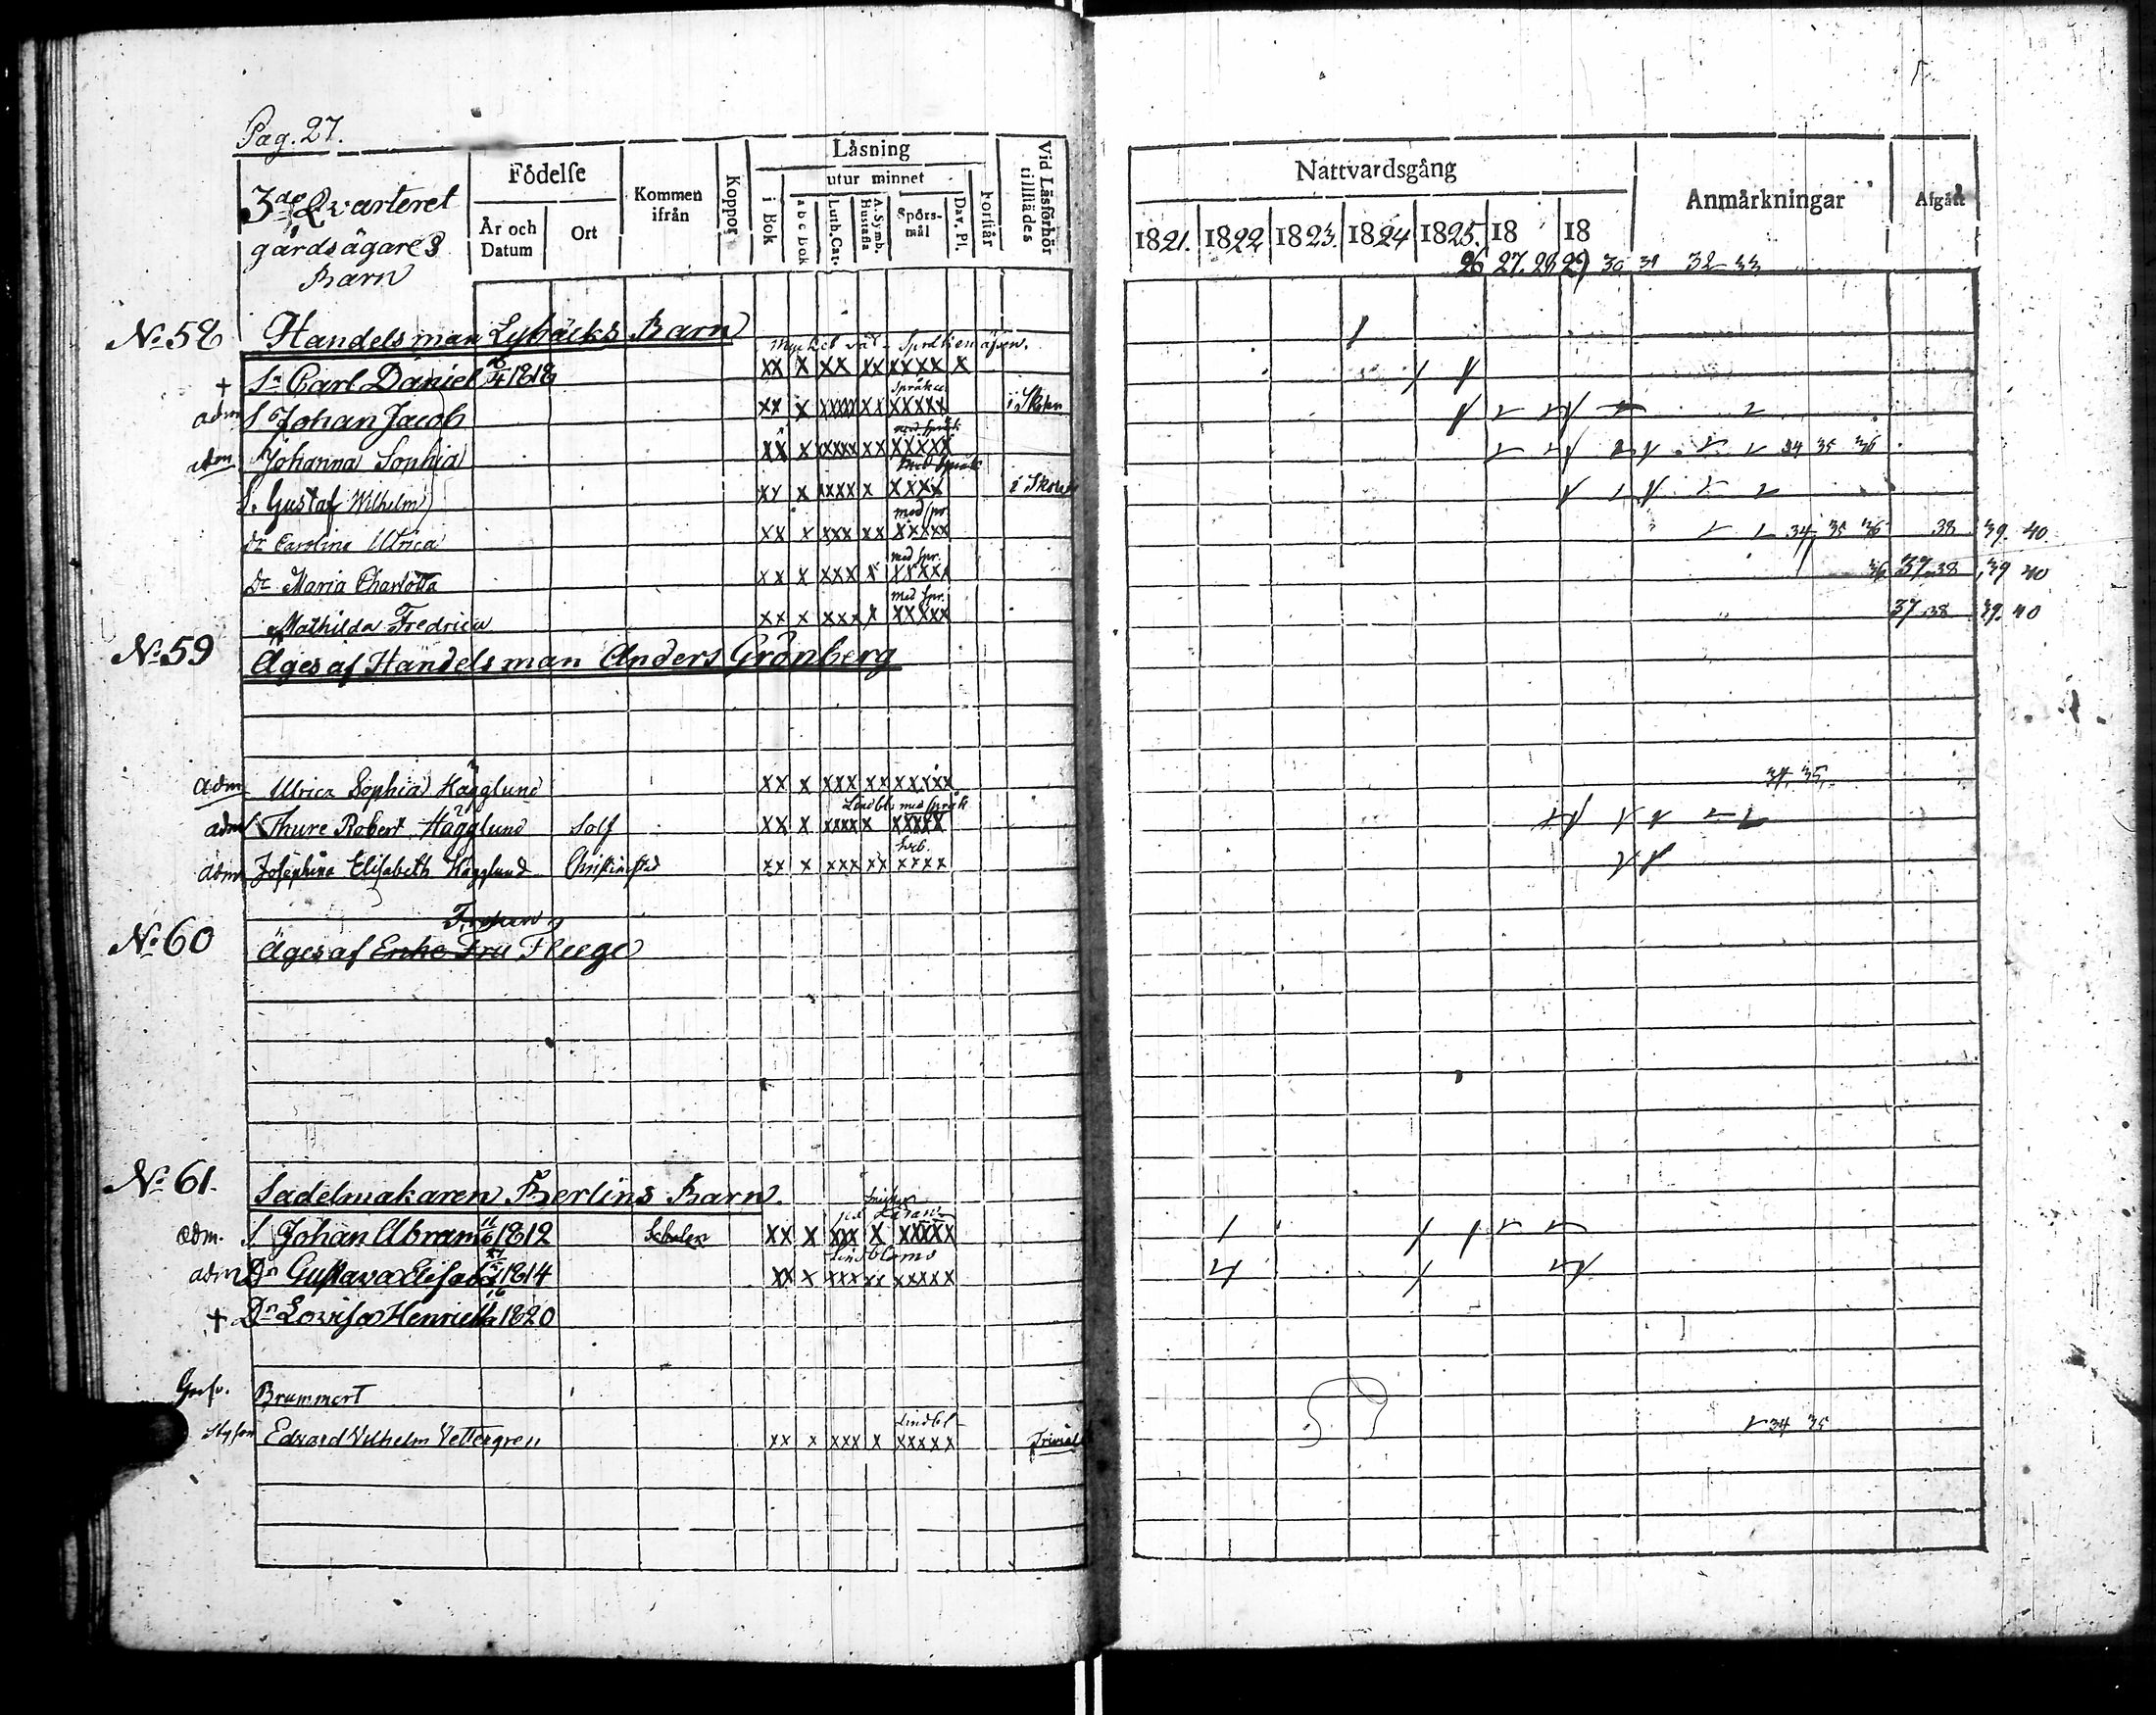 Pag. 27.
3de Qvarteret
gårdsägares
Barn
Födelse
År och Datum
Ort
Kommen ifrån
Koppor
Läsning
utur minnet
i Bok
a b c bok
Luth. Cat.
A. Symb. Hustafla
Spörsmål
Dav. Pl.
Förstår
Vid Läsförhör tillstädes
Nattvardsgång
1821. 1822 1823. 1824 1825. 18 18
26 27. 28 29 30 31 32 33
Anmärkningar
Afgått
No 58 Handelsman Lybäcks Barn
† Sn Carl Daniel 1818 xx x xx xx xxxx x
adm S Johan Jacob xx x xxxxx xx xxxxx i Skolan
adm Johanna Sophia xx x xxxxx xx xxxxx 34 35 36
S. Gustaf Wilhelm xx x xxxx x xxxx i Skolan
Dr Carolina Ulrica xx x xxx xx xxxxx 34 35 36 38 39. 40.
Dr Maria Charlotta xx x xxx x xxxxx 36 37. 38 39 40
Mathilda Fredrica xx x xxx x xxxxx 37 38 39. 40
No 59 Äges af Handelsman Anders Grönberg
adm Ulrica Sophia Hägglund xx x xxx xx xxxxx 34. 35.
adm Thure Robert Hägglund Solf xx x xxxx x xxxxx
adm Josephina Elisabeth Hägglund Christinestad xx x xxx xx xxxx
No 60 Äges af Enke Fru Fleege
No 61. Sadelmakaren Berlins Barn.
adm. S Johan Abram 1812 Scholan xx x xxx x xxxxx
Lindbloms
adm Dr Gustava Elisab 1814 xx x xxx xx xxxxx
† Dr Lovisa Henrietta 1820
Brummert
Lindbl
Edvard Vilhelm Vettergren xx x xxx x xxxxx Trivial 34 35